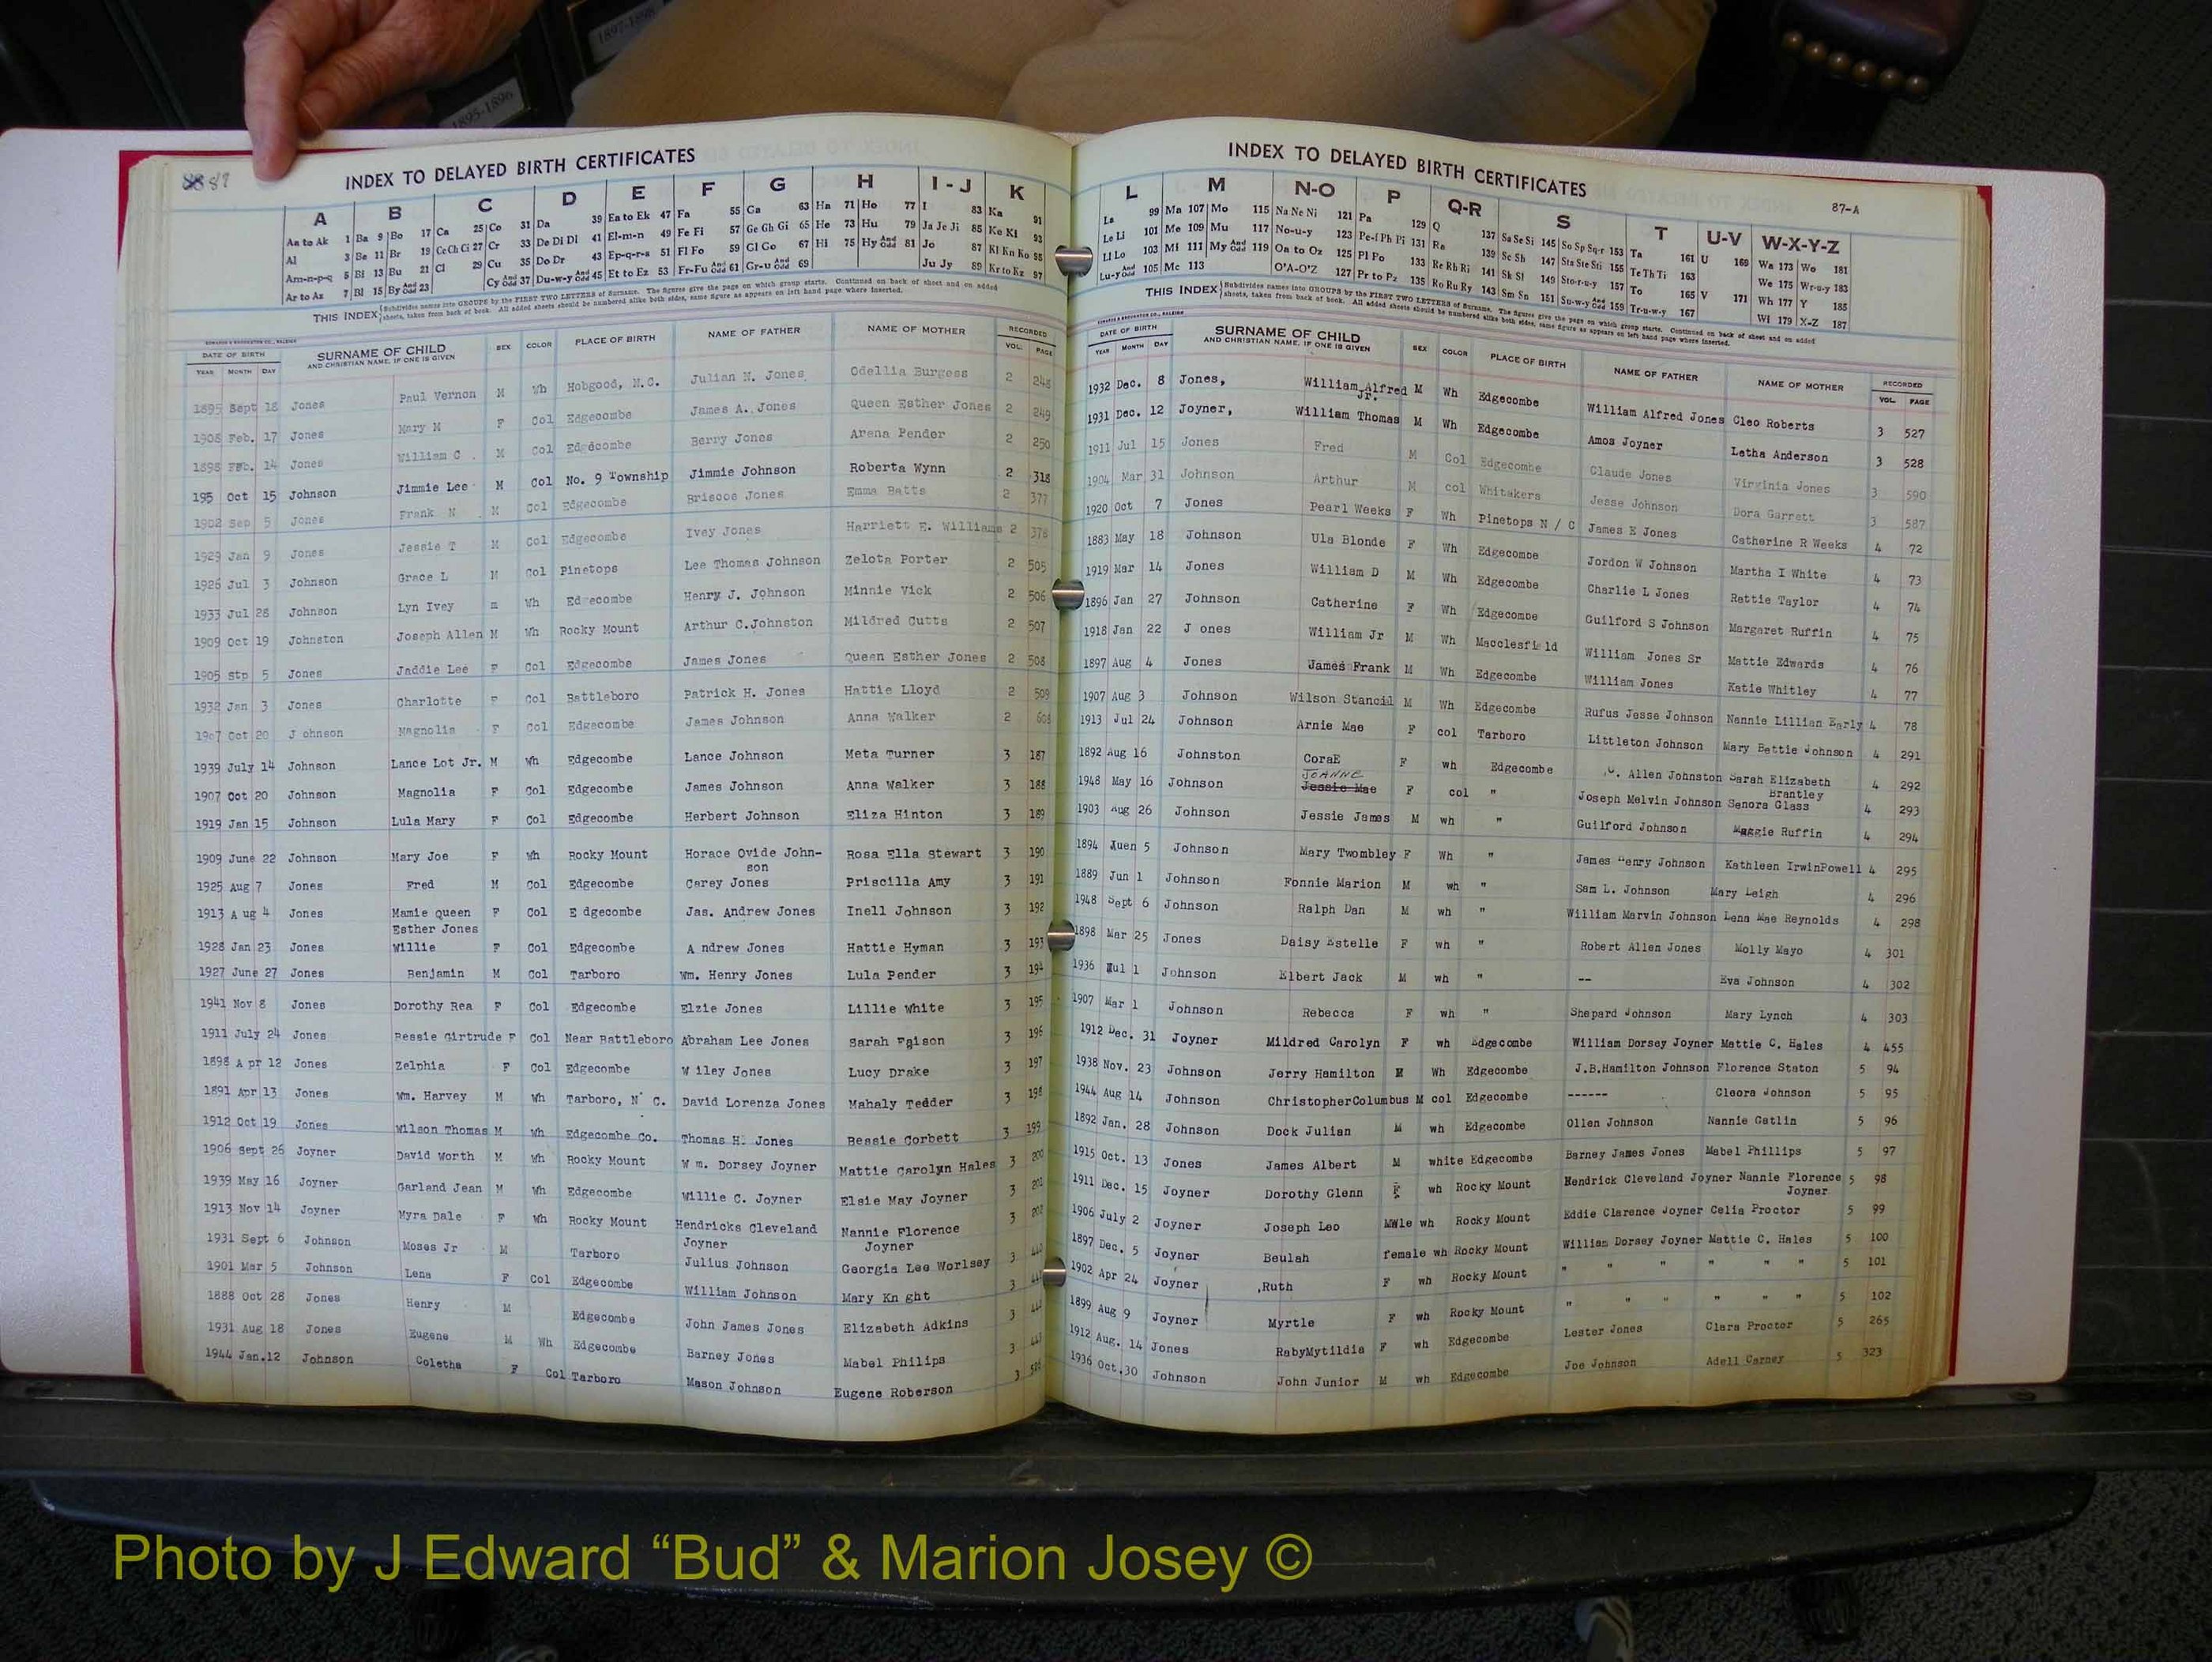 1897-1898
1895-1896
INDEX TO DELAYED BIRTH CERTIFICATES
A B C D E F G H I-J K
Aa to Ak 1 Ba 9 Bo 17 Ca 25 Co 31 Da 39 Ea to Ek 47 Fa 55 Ga 63 Ha 71 Ho 77 I 83 Ka 91
Al 3 Be 11 Br 19 Ce Ch Ci 27 Cr 33 De Di Dl 41 El-m-n 49 Fe Fi 57 Ge Gh Gi 65 He 73 Hu 79 Ja Je Ji 85 Ke Ki 93
Am-n-p-q 5 Bi 13 Bu 21 Cl 29 Cu 35 Do Dr 43 Ep-q-r-s 51 Fl Fo 59 Gl Go 67 Hi 75 Hy And Odd 81 Jo 87 Kl Kn Ko 95
Ar to Az 7 Bl 15 By And Odd 23 Cy And Odd 37 Du-w-y And Odd 45 Et to Ez 53 Fr-Fu And Odd 61 Gr-u And Odd 69 Ju Jy 89 Kr to Kz 97
THIS INDEX Subdivides names into GROUPS by the FIRST TWO LETTERS of Surname. The figures give the page on which group starts. Continued on back of sheet and on added
sheets, taken from back of book. All added sheets should be numbered alike both sides, same figure as appears on left hand page where inserted.
DATE OF BIRTH SURNAME OF CHILD SEX COLOR PLACE OF BIRTH NAME OF FATHER NAME OF MOTHER RECORDED
YEAR MONTH DAY AND CHRISTIAN NAME, IF ONE IS GIVEN VOL. PAGE
1895 Sept 18 Jones Paul Vernon M Wh Hobgood, N.C. Julian N. Jones Odellia Burgess 2 248
1908 Feb. 17 Jones Mary M F Col Edgecombe James A. Jones Queen Esther Jones 2 249
1898 Feb. 14 Jones William C . M Col Edgdcombe Berry Jones Arena Pender 2 250
195 Oct 15 Johnson Jimmie Lee M Col No. 9 Township Jimmie Johnson Roberta Wynn 2 318
1902 Sep 5 Jones Frank N M Col Edgecombe Briscoe Jones Emma Batts 2 377
1929 Jan 9 Jones Jessie T M Col Edgecombe Ivey Jones Harriett E. Williams 2 378
1926 Jul 3 Johnson Grace L M Col Pinetops Lee Thomas Johnson Zelota Porter 2 505
1933 Jul 28 Johnson Lyn Ivey m Wh Ed ecombe Henry J. Johnson Minnie Vick 2 506
1909 Oct 19 Johnston Joseph Allen M Wh Rocky Mount Arthur C.Johnston Mildred Cutts 2 507
1905 stp 5 Jones Jaddie Lee F Col Edgecombe James Jones Queen Esther Jones 2 508
1932 Jan 3 Jones Charlotte F Col Battleboro Patrick H. Jones Hattie Lloyd 2 509
1907 Oct 20 J ohnson Magnolia F Col Edgecombe James Johnson Anna Walker 2 608
1939 July 14 Johnson Lance Lot Jr. M Wh Edgecombe Lance Johnson Meta Turner 3 187
1907 Oct 20 Johnson Magnolia F Col Edgecombe James Johnson Anna Walker 3 188
1919 Jan 15 Johnson Lula Mary F Col Edgecombe Herbert Johnson Eliza Hinton 3 189
1909 June 22 Johnson Mary Joe F Wh Rocky Mount Horace Ovide John-
son Rosa Ella Stewart 3 190
1925 Aug 7 Jones Fred M Col Edgecombe Carey Jones Priscilla Amy 3 191
1913 A ug 4 Jones Mamie Queen F Col E dgecombe Jas. Andrew Jones Inell Johnson 3 192
Esther Jones
1928 Jan 23 Jones Willie F Col Edgecombe A ndrew Jones Hattie Hyman 3 193
1927 June 27 Jones Benjamin M Col Tarboro Wm. Henry Jones Lula Pender 3 194
1941 Nov 8 Jones Dorothy Rea F Col Edgecombe Elzie Jones Lillie White 3 195
1911 July 24 Jones Bessie Girtrude F Col Near Battleboro Abraham Lee Jones Sarah Faison 3 196
1898 A pr 12 Jones Zelphia F Col Edgecombe W iley Jones Lucy Drake 3 197
1891 Apr 13 Jones Wm. Harvey M Wh Tarboro, N C. David Lorenza Jones Mahaly Tedder 3 198
1912 Oct 19 Jones Wilson Thomas M Wh Edgecombe Co. Thomas H. Jones Bessie Corbett 3 199
1906 Sept 26 Joyner David Worth M Wh Rocky Mount W m. Dorsey Joyner Mattie Carolyn Hales 3 200
1939 May 16 Joyner Garland Jean M Wh Edgecombe Willie C. Joyner Elsie May Joyner 3 201
1913 Nov 14 Joyner Myra Dale F Wh Rocky Mount Hendricks Cleveland Nannie Florence 3 202
Joyner Joyner
1931 Sept 6 Johnson Moses Jr M Tarboro Julius Johnson Georgia Lee Worlsey 3
1901 Mar 5 Johnson Lena F Col Edgecombe William Johnson Mary Kn ght 3
1888 Oct 28 Jones Henry M Edgecombe John James Jones Elizabeth Adkins 3
1931 Aug 18 Jones Eugene M Wh Edgecombe Barney Jones Mabel Philips 3
1944 Jan.12 Johnson Coletha F Col Tarboro Mason Johnson Eugene Roberson 3
INDEX TO DELAYED BIRTH CERTIFICATES
87-A
L M N-O P Q-R S T U-V W-X-Y-Z
La 99 Ma 107 Mo 115 Na Ne Ni 121 Pa 129 Q 137 Sa Se Si 145 So Sp Sq-r 153 Ta 161 U 169 Wa 173 Wo 181
Le Li 101 Me 109 Mu 117 No-u-y 123 Pe-f Ph Pi 131 Ra 139 Sc Sh 147 Sta Ste Sti 155 Te Th Ti 163 We 175 Wr-u-y 183
Ll Lo 103 Mi 111 My And Odd 119 Oa to Oz 125 Pl Po 133 Re Rh Ri 141 Sk Sl 149 Sto-r-u-y 157 To 165 V 171 Wh 177 Y 185
Lu-y And Odd 105 Mc 113 O'A-O'Z 127 Pr to Pz 135 Ro Ru Ry 143 Sm Sn 151 Su-w-y And Odd 159 Tr-u-w-y 167 Wi 179 X-Z 187
THIS INDEX Subdivides names into GROUPS by the FIRST TWO LETTERS of Surname. The figures give the page on which group starts. Continued on back of sheet and on added
sheets, taken from back of book. All added sheets should be numbered alike both sides, same figure as appears on left hand page where inserted.
DATE OF BIRTH SURNAME OF CHILD SEX COLOR PLACE OF BIRTH NAME OF FATHER NAME OF MOTHER RECORDED
YEAR MONTH DAY AND CHRISTIAN NAME, IF ONE IS GIVEN VOL. PAGE
1932 Dec. 8 Jones, William Alfred M Wh Edgecombe William Alfred Jones Cleo Roberts 3 527
Jr.
1931 Dec. 12 Joyner, William Thomas M Wh Edgecombe Amos Joyner Letha Anderson 3 528
1911 Jul 15 Jones Fred M Col Edgecombe Claude Jones Virginia Jones 3 590
1904 Mar 31 Johnson Arthur M col Whitakers Jesse Johnson Dora Garrett 3 587
1920 Oct 7 Jones Pearl Weeks F Wh Pinetops N / C James E Jones Catherine R Weeks 4 72
1883 May 18 Johnson Ula Blonde F Wh Edgecombe Jordon W Johnson Martha I White 4 73
1919 Mar 14 Jones William D M Wh Edgecombe Charlie L Jones Rettie Taylor 4 74
1896 Jan 27 Johnson Catherine F Wh Edgecombe Guilford S Johnson Margaret Ruffin 4 75
1918 Jan 22 J ones William Jr M Wh Macclesfield William Jones Sr Mattie Edwards 4 76
1897 Aug 4 Jones James Frank M Wh Edgecombe William Jones Katie Whitley 4 77
1907 Aug 3 Johnson Wilson Stancil M Wh Edgecombe Rufus Jesse Johnson Nannie Lillian Early 4 78
1913 Jul 24 Johnson Arnie Mae F col Tarboro Littleton Johnson Mary Bettie Johnson 4 291
1892 Aug 16 Johnston CoraE F wh Edgecombe . Allen Johnston Sarah Elizabeth 4 292
Brantley
JOANNE
1948 May 16 Johnson Jessie Mae F col " Joseph Melvin Johnson Senora Glass 4 293
1903 Aug 26 Johnson Jessie James M wh " Guilford Johnson Maggie Ruffin 4 294
1894 Xuen 5 Johnson Mary Twombley F Wh " James Henry Johnson Kathleen IrwinPowell 4 295
1889 Jun 1 Johnson Fonnie Marion M wh " Sam L. Johnson Mary Leigh 4 296
1948 Sept 6 Johnson Ralph Dan M wh " William Marvin Johnson Lena Mae Reynolds 4 298
1898 Mar 25 Jones Daisy Estelle F wh " Robert Allen Jones Molly Mayo 4 301
1936 Jul 1 Johnson Elbert Jack M wh " -- Eva Johnson 4 302
1907 Mar 1 Johnson Rebecca F wh " Shepard Johnson Mary Lynch 4 303
1912 Dec. 31 Joyner Mildred Carolyn F wh Edgecombe William Dorsey Joyner Mattie C. Hales 4 455
1938 Nov. 23 Johnson Jerry Hamilton M Wh Edgecombe J.B.Hamilton Johnson Florence Staton 5 94
1944 Aug 14 Johnson ChristopherColumbus M col Edgecombe ------ Cleora Johnson 5 95
1892 Jan. 28 Johnson Dock Julian M wh Edgecombe Ollen Johnson Nannie Gatlin 5 96
1915 Oct. 13 Jones James Albert M white Edgecombe Barney James Jones Mabel Phillips 5 97
1911 Dec. 15 Joyner Dorothy Glenn F wh Rocky Mount Hendrick Cleveland Joyner Nannie Florence 5 98
Joyner
1906 July 2 Joyner Joseph Leo Male wh Rocky Mount Eddie Clarence Joyner Celia Proctor 5 99
1897 Dec. 5 Joyner Beulah female wh Rocky Mount William Dorsey Joyner Mattie C. Hales 5 100
1902 Apr 24 Joyner ,Ruth F wh Rocky Mount " " " " " " 5 101
1899 Aug 9 Joyner Myrtle F wh Rocky Mount " " " " " " 5 102
1912 Aug. 14 Jones RabyMytildia F wh Edgecombe Lester Jones Clara Proctor 5 265
1936 Oct.30 Johnson John Junior M wh Edgecombe Joe Johnson Adell Carney 5 323
Photo by J Edward “Bud” & Marion Josey ©